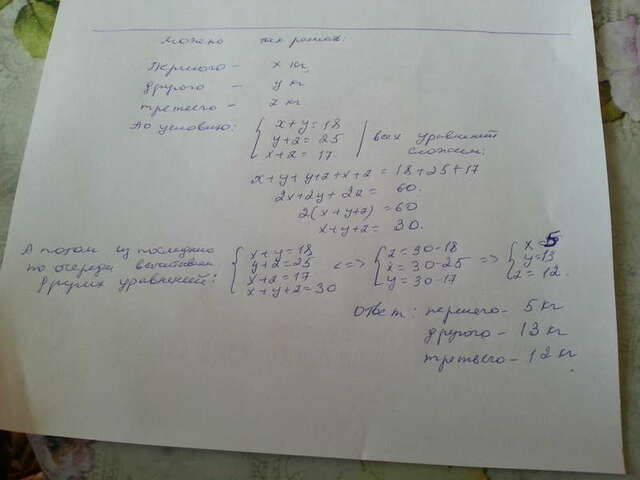 Можно так решать:
Первого - x кг,
другого - y кг
третьего - z кг
По условию: { x+y=18
y+z=25
x+z=17 | всех уравнений
сложим:
x+y+y+z+x+z = 18+25+17
2x+2y+2z = 60.
2(x+y+z) = 60
x+y+z = 30.
А потом из последнего
по очереди
других уравнений: { x+y=18
y+z=25
x+z=17
x+y+z=30
<=> { z=30-18
x=30-25
y=30-17
=> { x=5
y=13
z=12.
Ответ: первого - 5 кг
другого - 13 кг
третьего - 12 кг